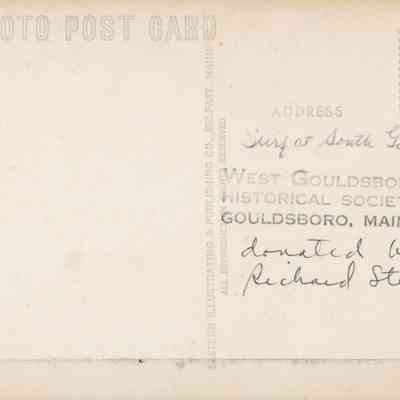 OTO POST CARD
EASTERN ILLUSTRATING & PUBLISHING CO., BELFAST, MAINE
ALL RESERVED
ADDRESS
Surf at South
WEST GOULDSBO
HISTORICAL SOCIET
GOULDSBORO, MAIN
donated
Richard Ste